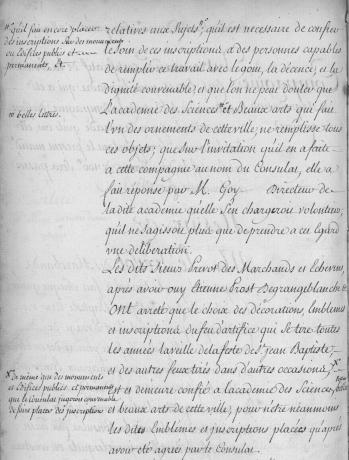 relatives aux Sujets, qu'il est necessaire de confier
le soin de ces inscriptions, a des personnes capables
de remplir ce travail avec le gout, la décence, et la
dignité convenable; et que l'on ne peut douter que
L'academie des Sciences et Beaux arts qui fait
l'un des ornements de cette ville, ne remplisse tous
ces objets; que sur l'invitation qu'il en a faite
a cette compagnie au nom du Consulat, elle a
fait réponse par M. Goy Directeur de
la dite academie qu'elle s'en chargeroit volontier,
qu'il ne s'agissoit plus que de prendre a cet égard
une déliberation.
Les dits Sieurs Prevot des Marchands et Echevins,
après avoir ouy Etienne Prost De grange blanche &
Ont arreté que le choix des décorations, Emblemes
et inscriptions du feu d'artifice qui se tire toutes
les années la veille de la feste de St. Jean Baptiste
et des autres feux tirés dans d'autres occasions
est et demeure confié a l'academie des Sciences
et beaux arts de cette ville; pour n'être néanmoins
les dites Emblemes et inscriptions placées qu'après
avoir été agreés par le Consulat.
qu'il faut encore placer
des inscriptions sur des monuments
ou Edifices publics et
permanents, &c.
belles lettres.
De même que des monuments
et Edifices publics et permanents
que le Consulat jugeroit convenable
de faire placer des inscriptions